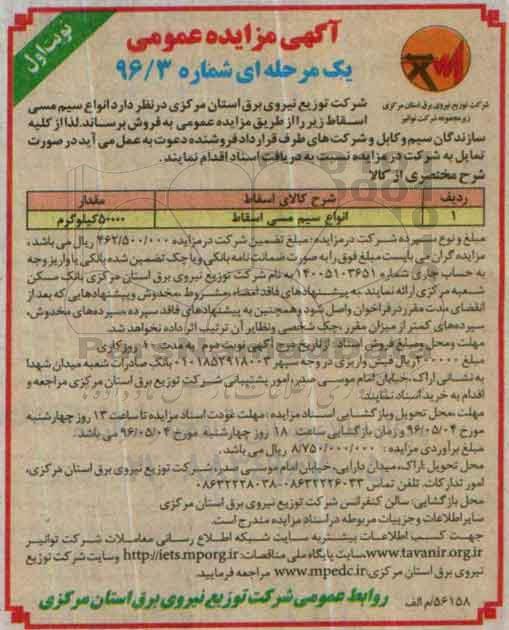 نوبت اول
آگهی مزایده عمومی
یک مرحله ای شماره ۹۶/۳
شرکت توزیع نیروی برق استان مرکزی
زیرمجموعه شرکت توانیر
شرکت توزیع نیروی برق استان مرکزی در نظر دارد انواع سیم مسی
اسقاط زیر را از طریق مزایده عمومی به فروش برساند. لذا از کلیه
سازندگان سیم و کابل و شرکت های طرف قرارداد فروشنده دعوت به عمل می آید در صورت
تمایل به شرکت در مزایده نسبت به دریافت اسناد اقدام نمایند.
شرح مختصری از کالا
ردیف شرح کالای اسقاط مقدار
۱ انواع سیم مسی اسقاط ۵۰۰۰۰کیلوگرم
مبلغ و نوع سپرده شرکت در مزایده: مبلغ تضمین شرکت در مزایده ۴۶۲/۵۰۰/۰۰۰ ریال می باشد،
مزایده گران می بایست مبلغ فوق را به صورت ضمانت نامه بانکی و یا چک تضمین شده بانکی یا واریز وجه
به حساب جاری شماره ۱۴۰۰۵۱۰۳۶۵۱ به نام شرکت توزیع نیروی برق استان مرکزی بانک مسکن
شعبه مرکزی ارائه نمایند. به پیشنهادهای فاقد امضاء، مشروط، مخدوش و پیشنهادهایی که بعد از
انقضای مدت مقرر در فراخوان واصل شود و همچنین به پیشنهادهای فاقد سپرده، سپرده های مخدوش،
سپرده های کمتر از میزان مقرر، چک شخصی و نظایر آن ترتیب اثر داده نخواهد شد.
مهلت و محل و مبلغ فروش اسناد: از تاریخ درج آگهی نوبت دوم به مدت ۱۰ روز کاری
مبلغ ۲۰۰۰۰۰ ریال فیش واریزی در وجه سپهر ۰۱۰۱۸۵۲۹۱۸۰۰۳ بانک صادرات شعبه میدان شهدا
به نشانی اراک، خیابان امام موسی صدر، امور پشتیبانی شرکت توزیع برق استان مرکزی مراجعه و
اقدام به خرید اسناد نمایند.
مهلت، محل تحویل و بازگشایی اسناد مزایده: مهلت عودت اسناد مزایده تا ساعت ۱۳ روز چهارشنبه
مورخ ۹۶/۰۵/۰۴ و زمان بازگشایی ساعت ۱۸ روز چهارشنبه مورخ ۹۶/۰۵/۰۴ می باشد.
مبلغ برآوردی مزایده: ۸/۷۵۰/۰۰۰/۰۰۰ ریال می باشد.
محل تحویل: اراک، میدان دارایی، خیابان امام موسی صدر، شرکت توزیع نیروی برق استان مرکزی،
امور تدارکات. تلفن تماس ۰۸۶۳۲۲۲۶۰۳۳-۰۸۶۳۲۲۲۸۰۳۸
محل بازگشایی: سالن کنفرانس شرکت توزیع نیروی برق استان مرکزی
سایر اطلاعات و جزییات مربوطه در اسناد مزایده مندرج است.
جهت کسب اطلاعات بیشتر به سایت شبکه اطلاع رسانی معاملات شرکت توانیر
www.tavanir.org.ir، سایت پایگاه ملی مناقصات: http://iets.mporg.ir و سایت شرکت توزیع
نیروی برق استان مرکزی: www.mpedc.ir مراجعه فرمایید.
روابط عمومی شرکت توزیع نیروی برق استان مرکزی
۵۶۱۵۸/م الف